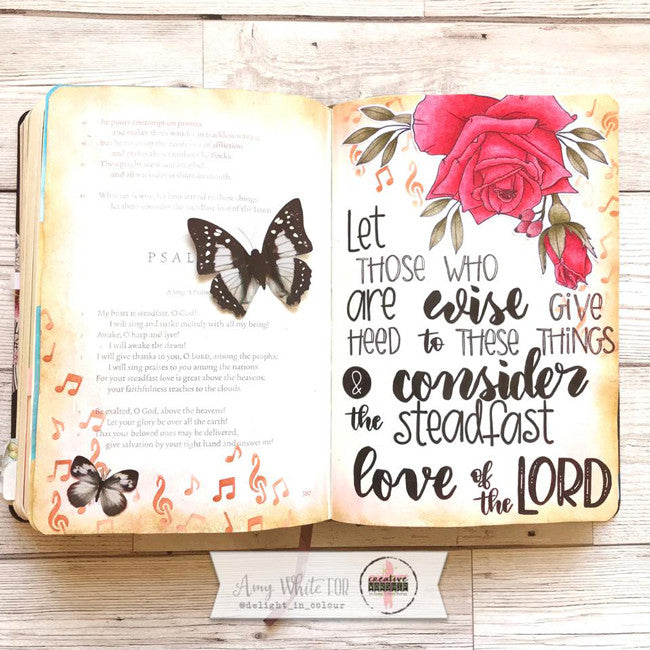 he pours contempt on princes
and makes them wander in trackless wastes;
but he raises up the needy out of affliction
and makes their families like flocks.
The upright see it and are glad,
and all wickedness shuts its mouth.
Whoever is wise, let him attend to these things;
let them consider the steadfast love of the LORD.
PSAL
A Song. A Psalm
My heart is steadfast, O God!
I will sing and make melody with all my being!
Awake, O harp and lyre!
I will awake the dawn!
I will give thanks to you, O LORD, among the peoples;
I will sing praises to you among the nations.
For your steadfast love is great above the heavens;
your faithfulness reaches to the clouds.
Be exalted, O God, above the heavens!
Let your glory be over all the earth!
That your beloved ones may be delivered,
give salvation by your right hand and answer me!
Let
THOSE WHO
are wise GIVE
HEED to THESE THINGS
& consider
the steadfast
love of the LORD
Amy White FOR
@delight_in_colour
creative
WORSHIP